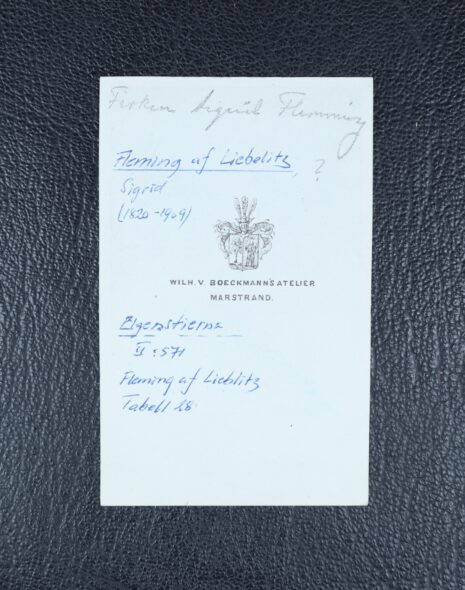 Fröken Sigrid Flemming
Fleming af Liebelitz, ?
Sigrid
(1820-1909)
WILH. V. BOECKMANN'S ATELIER
MARSTRAND.
Elgenstierna
II:571
Fleming af Lieblitz
Tabell 28